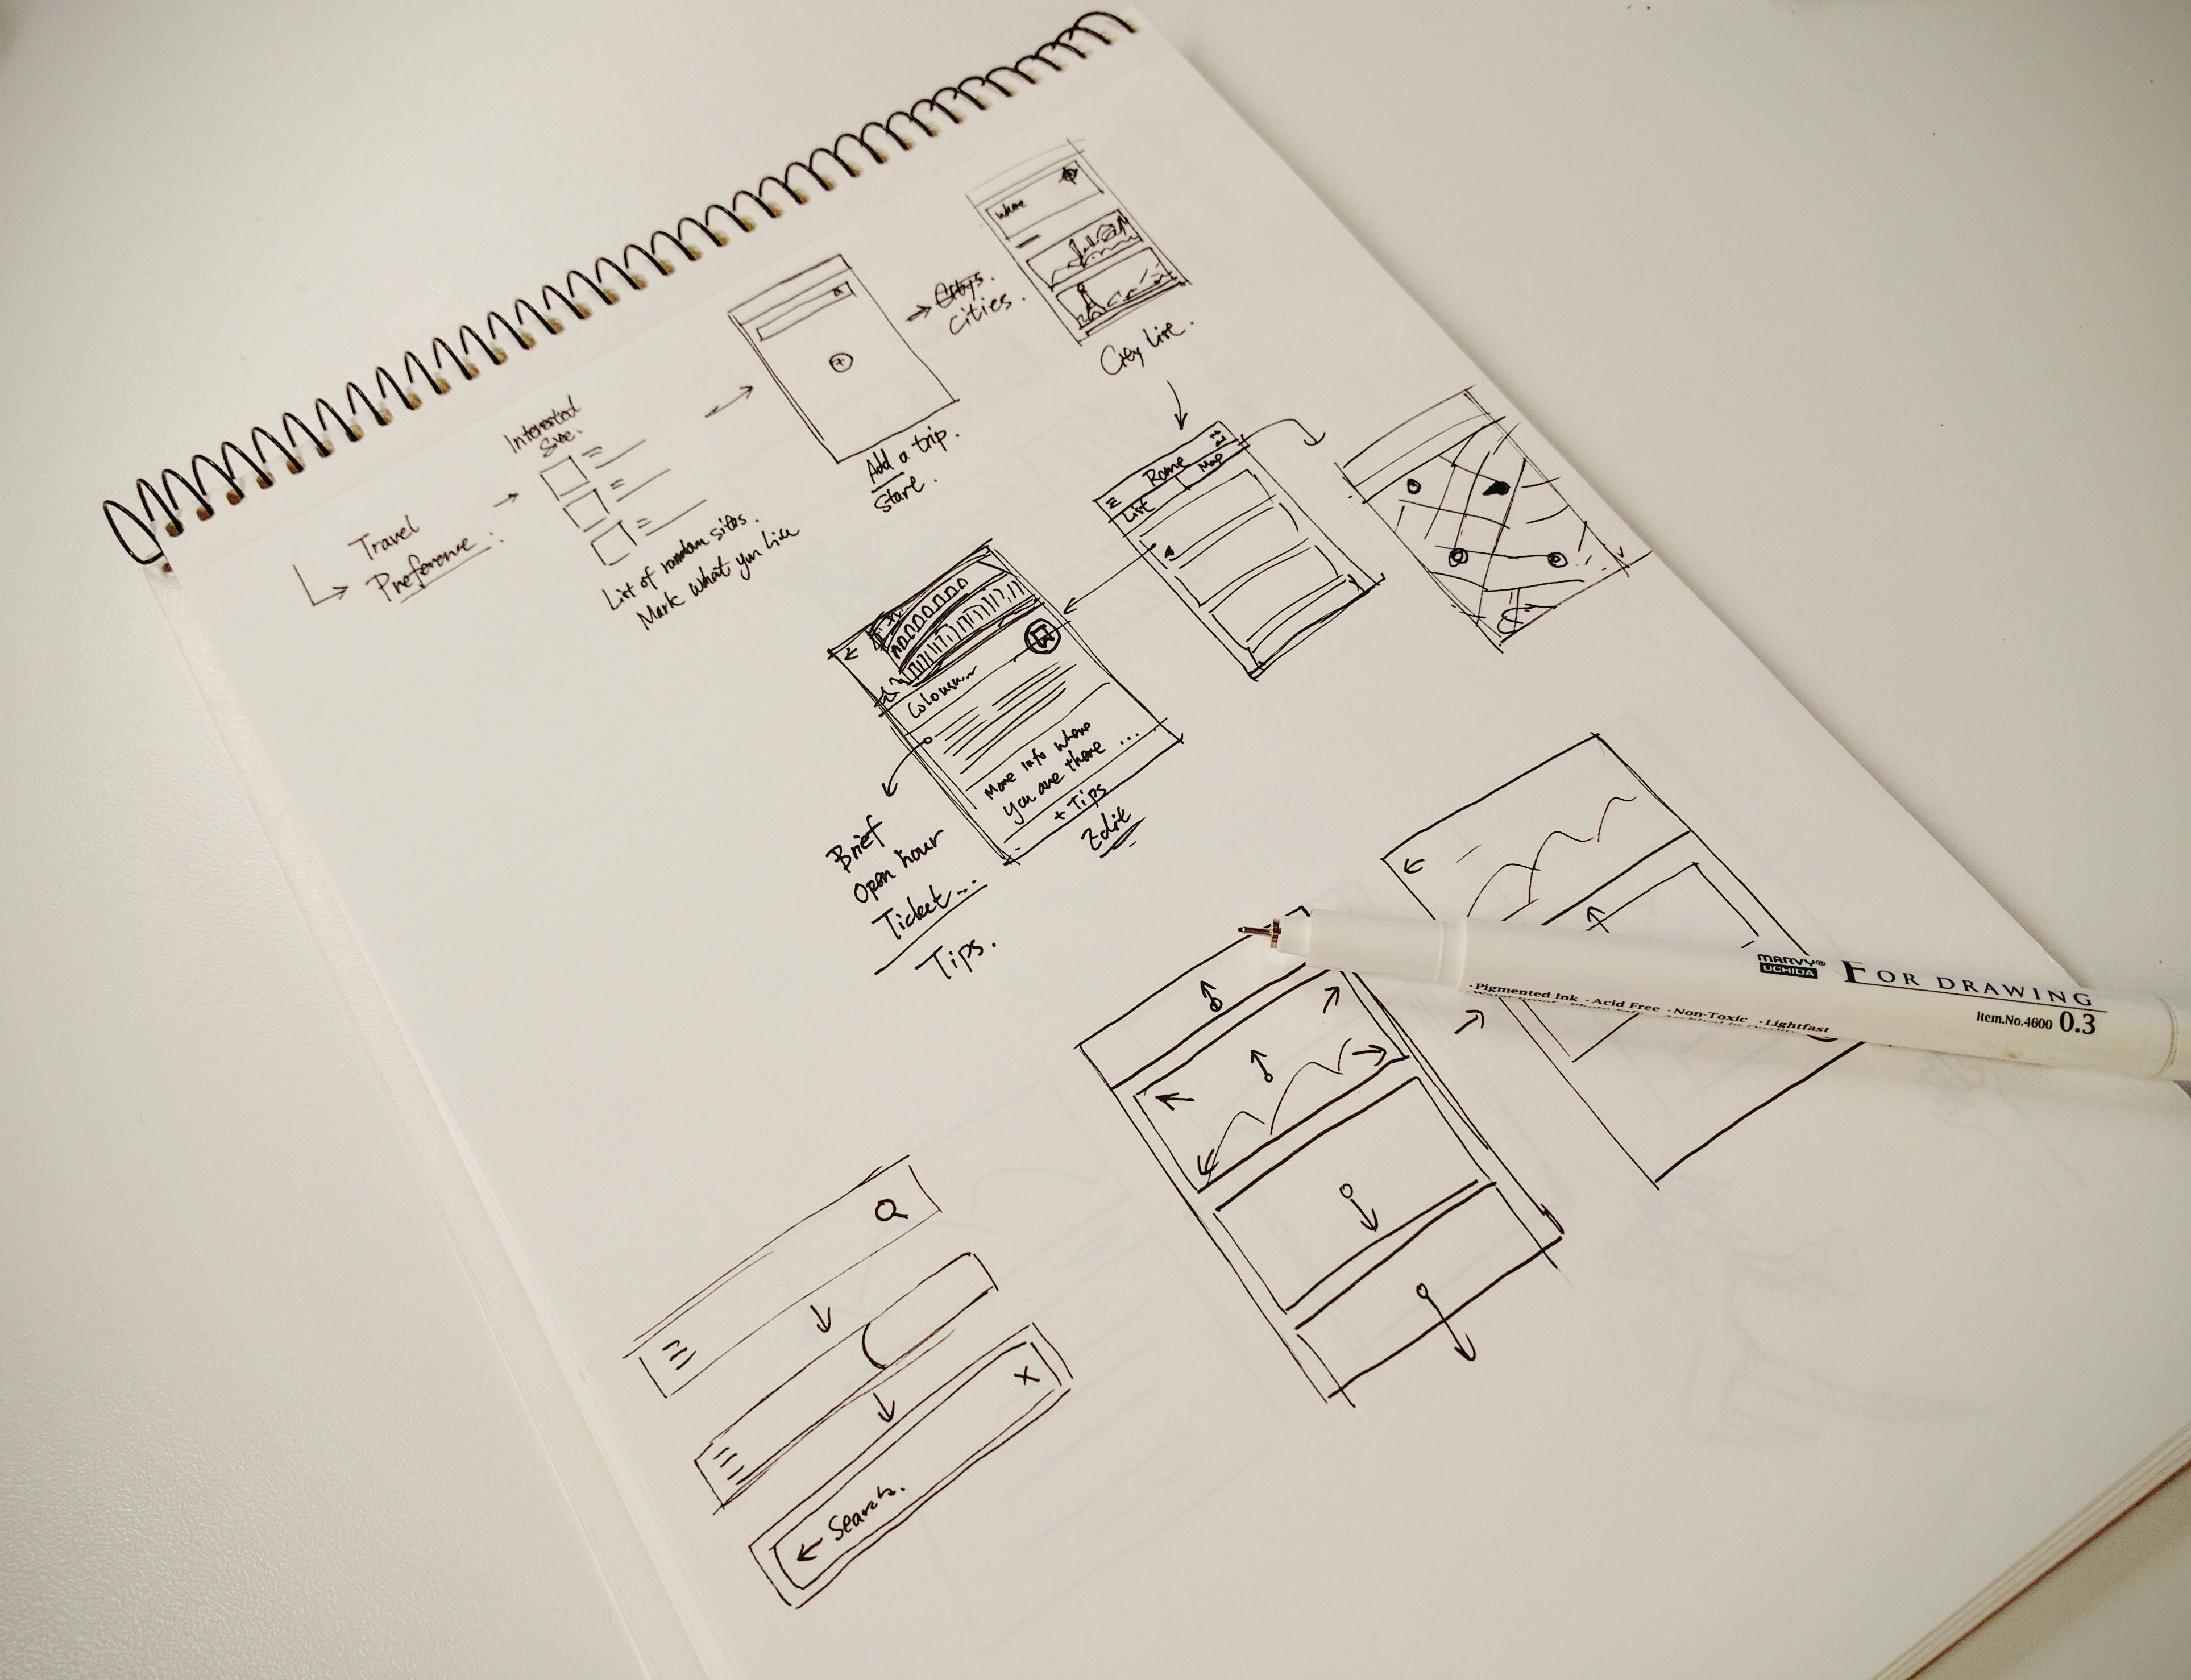 Travel
Preference:
Interested
Site.
List of random sites.
Mark what you like
Add a trip.
Start.
Citys.
cities.
where
City List.
Rome
List
Map
Colosseu...
More info when
you are there ...
+ Tips
Edit
Brief
Open hour
Ticket...
Tips.
Search.
MARVY®
UCHIDA
FOR DRAWING
·Pigmented Ink ·Acid Free ·Non-Toxic ·Lightfast
Item.No.4600 0.3